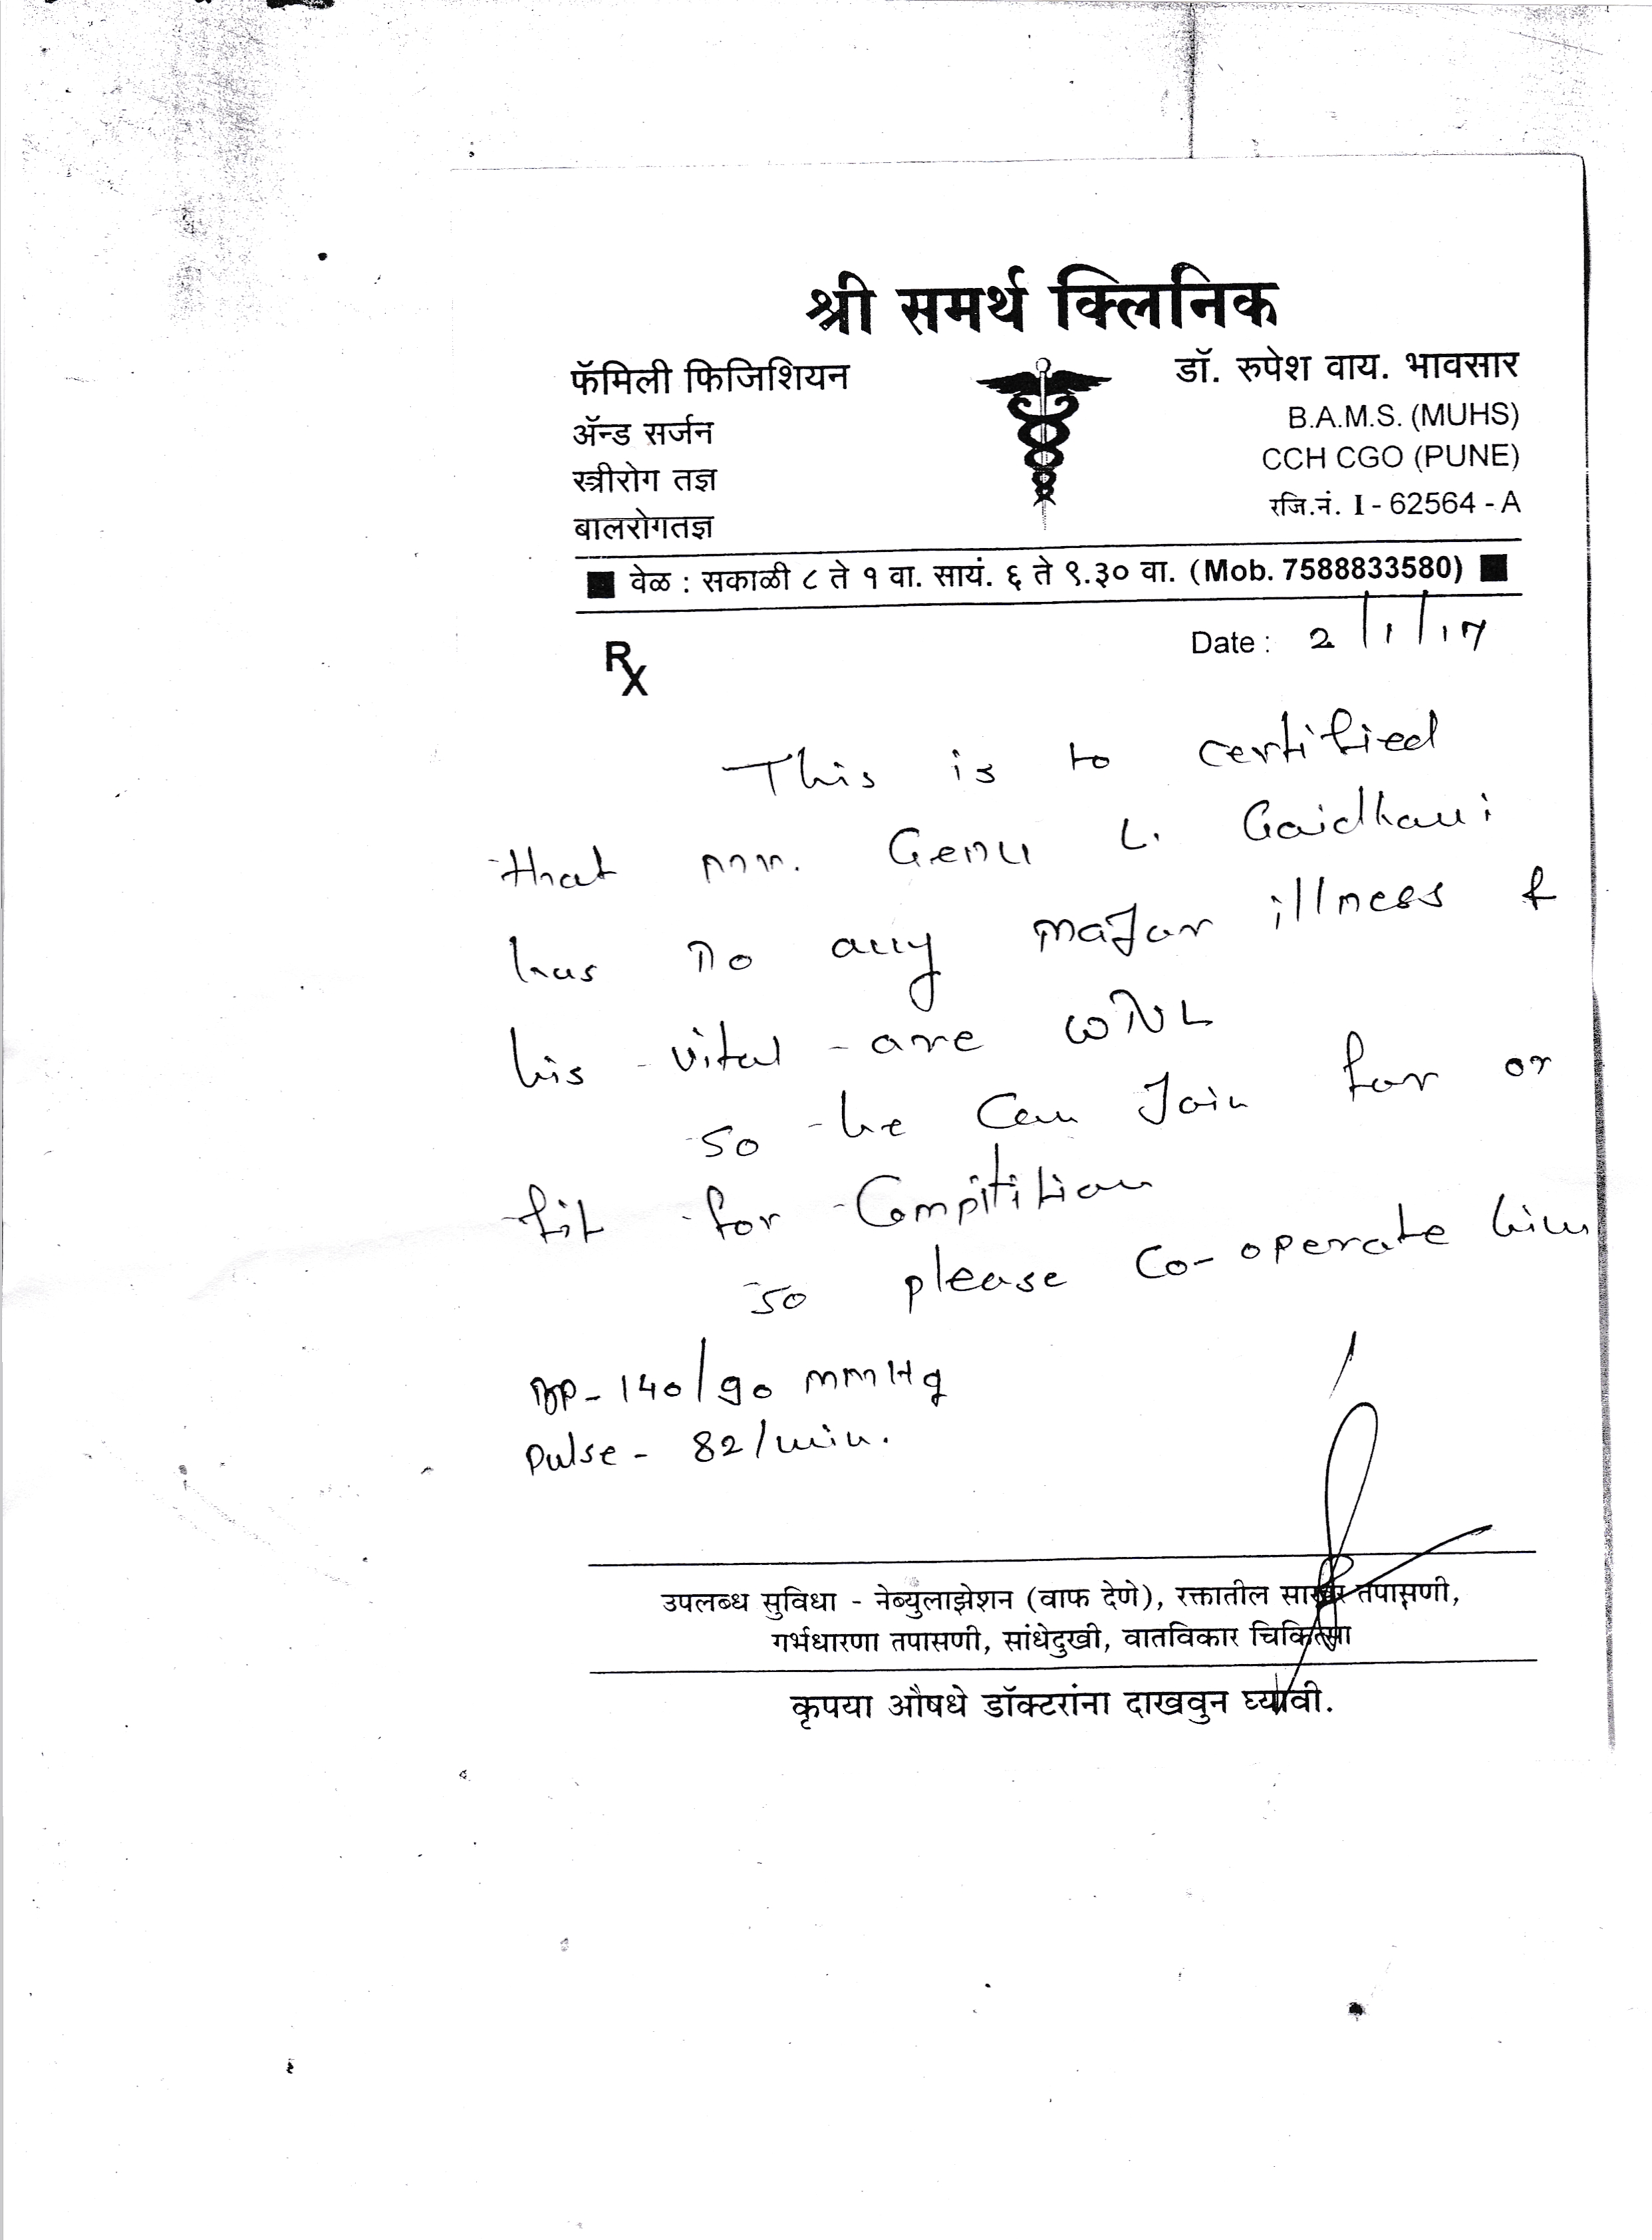 श्री समर्थ क्लिनिक
फॅमिली फिजिशियन
ॲन्ड सर्जन
स्त्रीरोग तज्ञ
बालरोगतज्ञ
डॉ. रुपेश वाय. भावसार
B.A.M.S. (MUHS)
CCH CGO (PUNE)
रजि.नं. I - 62564 - A
वेळ : सकाळी ८ ते १ वा. सायं. ६ ते ९.३० वा. (Mob. 7588833580)
Rx
Date : 2/1/17
This is to certified
that mr. Genu L. Gaidhani
has no any major illness &
his vital are WNL
so he can Join for or
fit for Compitition
so please co-operate him
BP - 140/90 mmHg
Pulse - 82/min.
उपलब्ध सुविधा - नेब्युलाझेशन (वाफ देणे), रक्तातील साखर तपासणी,
गर्भधारणा तपासणी, सांधेदुखी, वातविकार चिकित्सा
कृपया औषधे डॉक्टरांना दाखवुन घ्यावी.